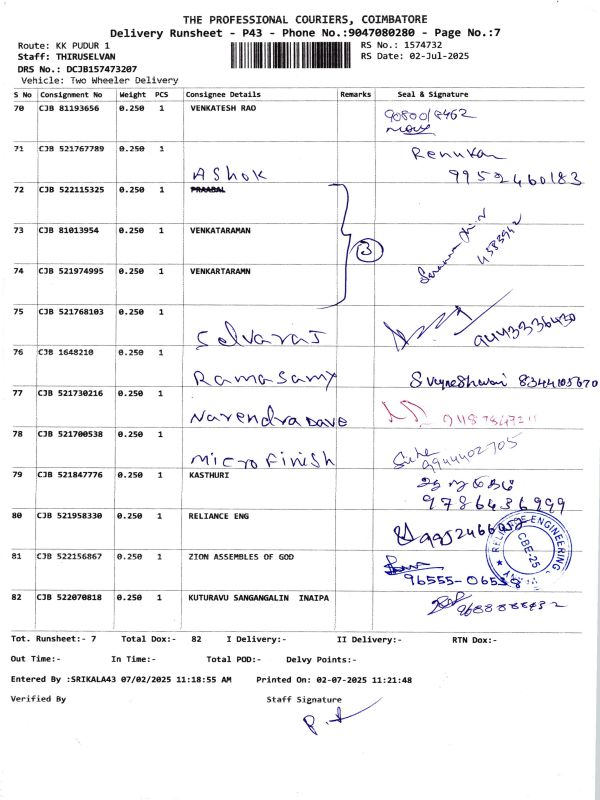 THE PROFESSIONAL COURIERS, COIMBATORE
Delivery Runsheet - P43 - Phone No.:9047080280 - Page No.:7
Route: KK PUDUR 1
RS No.: 1574732
Staff: THIRUSELVAN
RS Date: 02-Jul-2025
DRS No.: DCJB157473207
Vehicle: Two Wheeler Delivery
S No Consignment No Weight PCS Consignee Details Remarks Seal & Signature
70 CJB 81193656 0.250 1 VENKATESH RAO
71 CJB 521767789 0.250 1 Ashok Renukan 9952460183
72 CJB 522115325 0.250 1
73 CJB 81013954 0.250 1 VENKATARAMAN 3
74 CJB 521974995 0.250 1 VENKARTARAMN
75 CJB 521768103 0.250 1 Selvaraj 9443336430
76 CJB 1648210 0.250 1 Ramasamy 8344105670
77 CJB 521730216 0.250 1 Narendra Dave
78 CJB 521700538 0.250 1 Micro Finish 9944402705
79 CJB 521847776 0.250 1 KASTHURI 9786436999
80 CJB 521958330 0.250 1 RELIANCE ENG
RELIANCE ENGINEERING
CBE-25
81 CJB 522156867 0.250 1 ZION ASSEMBLES OF GOD
82 CJB 522070818 0.250 1 KUTURAVU SANGANGALIN INAIPA
Tot. Runsheet:- 7 Total Dox:- 82 I Delivery:- II Delivery:- RTN Dox:-
Out Time:- In Time:- Total POD:- Delvy Points:-
Entered By :SRIKALA43 07/02/2025 11:18:55 AM Printed On: 02-07-2025 11:21:48
Verified By Staff Signature